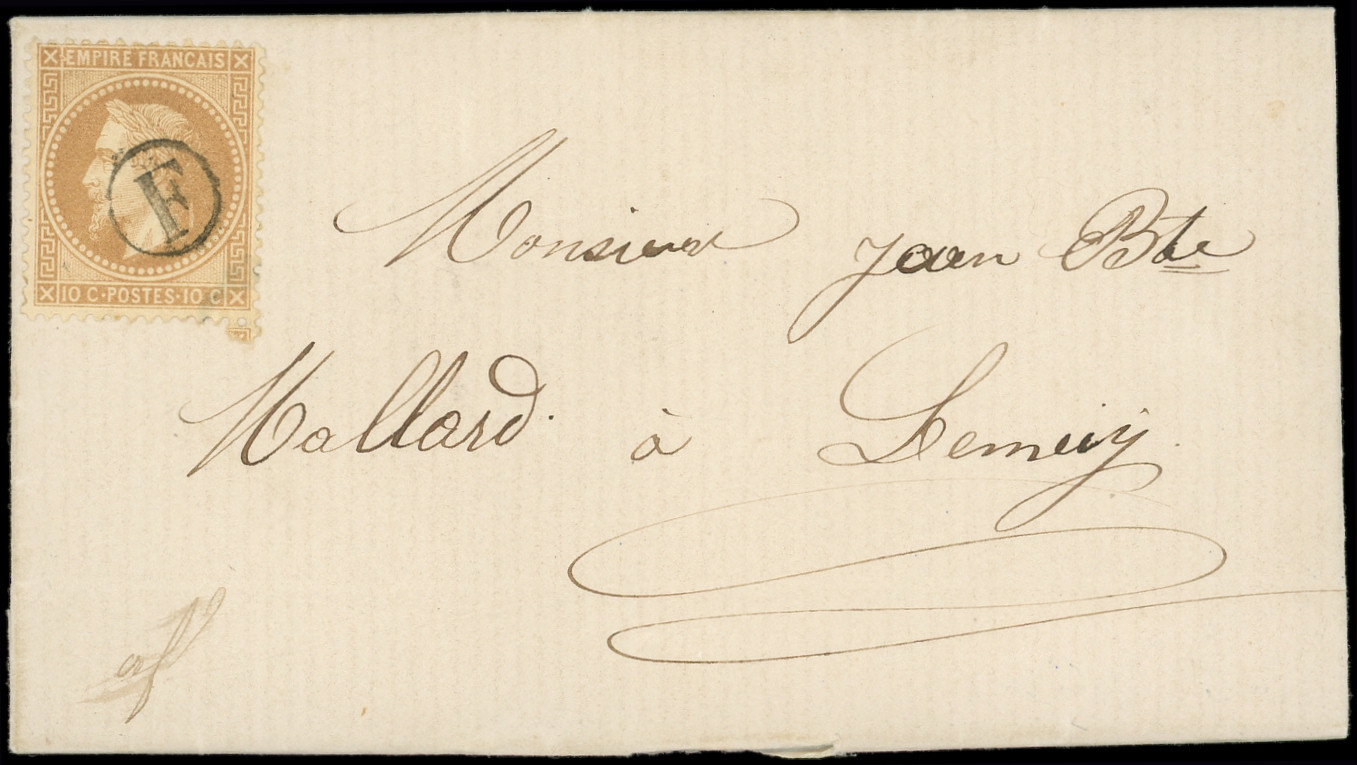 EMPIRE FRANCAIS
F
10 C · POSTES · 10 C
Monsieur Jean Bte
Mallard. à